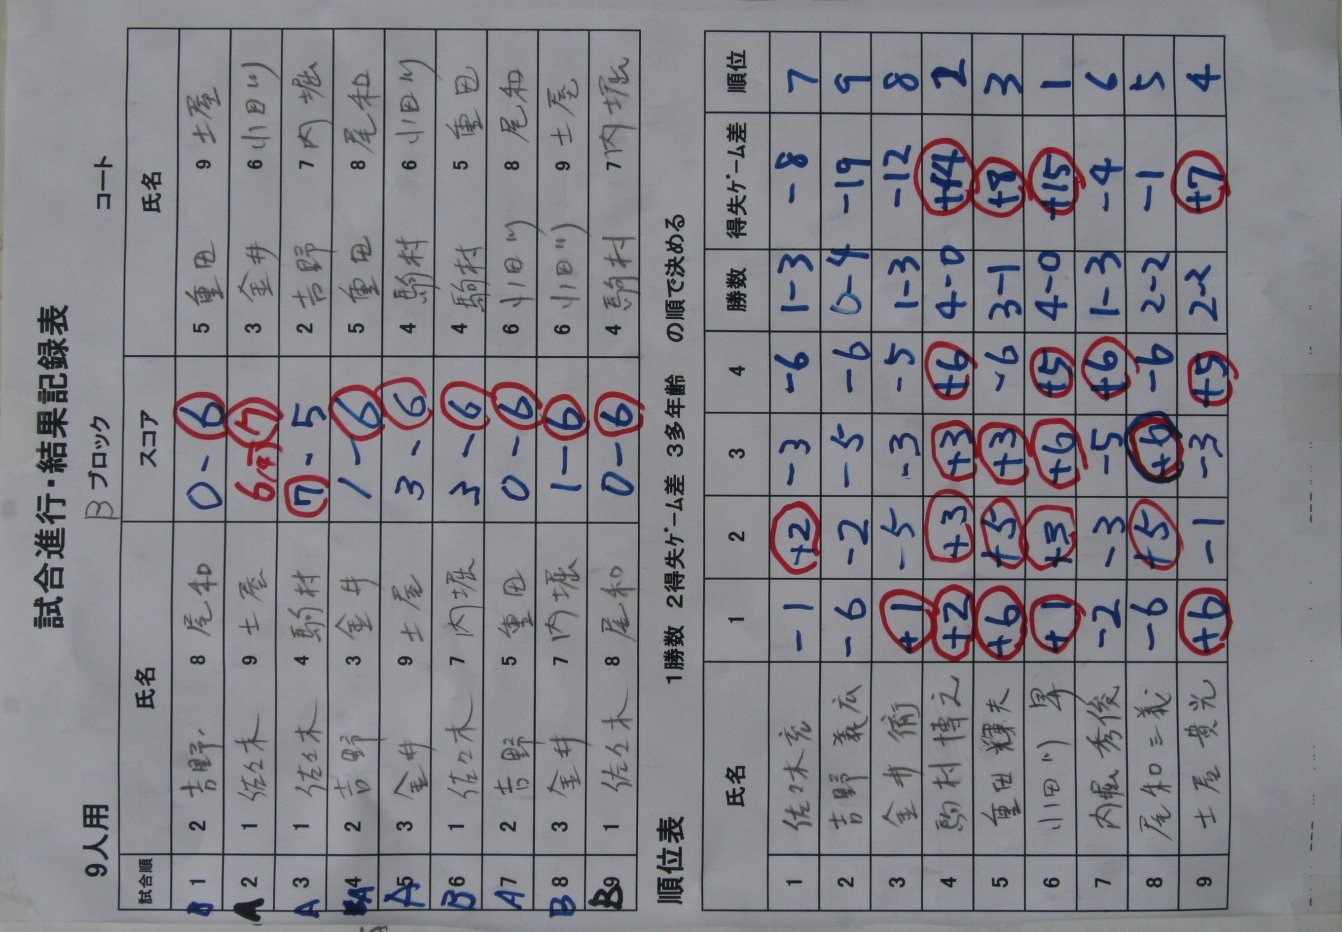 試合進行・結果記録表
9人用 B ブロック コート
試合順 氏名 スコア 氏名
B 1 2 吉野 8 尾和 0-6 5 重田 9 土屋
A 2 1 佐々木 9 土屋 6(4)-7 3 金井 6 小田川
A 3 1 佐々木 4 駒村 7-5 2 吉野 7 内堀
A 4 2 吉野 3 金井 1-6 5 重田 8 尾和
A 5 3 金井 9 土屋 3-6 4 駒村 6 小田川
B 6 1 佐々木 7 内堀 3-6 4 駒村 5 重田
A 7 2 吉野 5 重田 0-6 6 小田川 8 尾和
B 8 3 金井 7 内堀 1-6 6 小田川 9 土屋
B 9 1 佐々木 8 尾和 0-6 4 駒村 7 内堀
順位表 1勝数 2得失ゲーム差 3多年齢 の順で決める
氏名 1 2 3 4 勝数 得失ゲーム差 順位
1 佐々木 -1 +2 -3 -6 1-3 -8 7
2 吉野 義広 -6 -2 -5 -6 0-4 -19 9
3 金井 +1 -5 -3 -5 1-3 -12 8
4 駒村 博之 +2 +3 +3 +6 4-0 +14 2
5 重田 輝夫 +6 +5 +3 -6 3-1 +8 3
6 小田川 昇 +1 +3 +6 +5 4-0 +15 1
7 内堀 秀俊 -2 -3 -5 +6 1-3 -4 6
8 尾和 三義 -6 +5 +6 -6 2-2 -1 5
9 土屋 貴光 +6 -1 -3 +5 2-2 +7 4